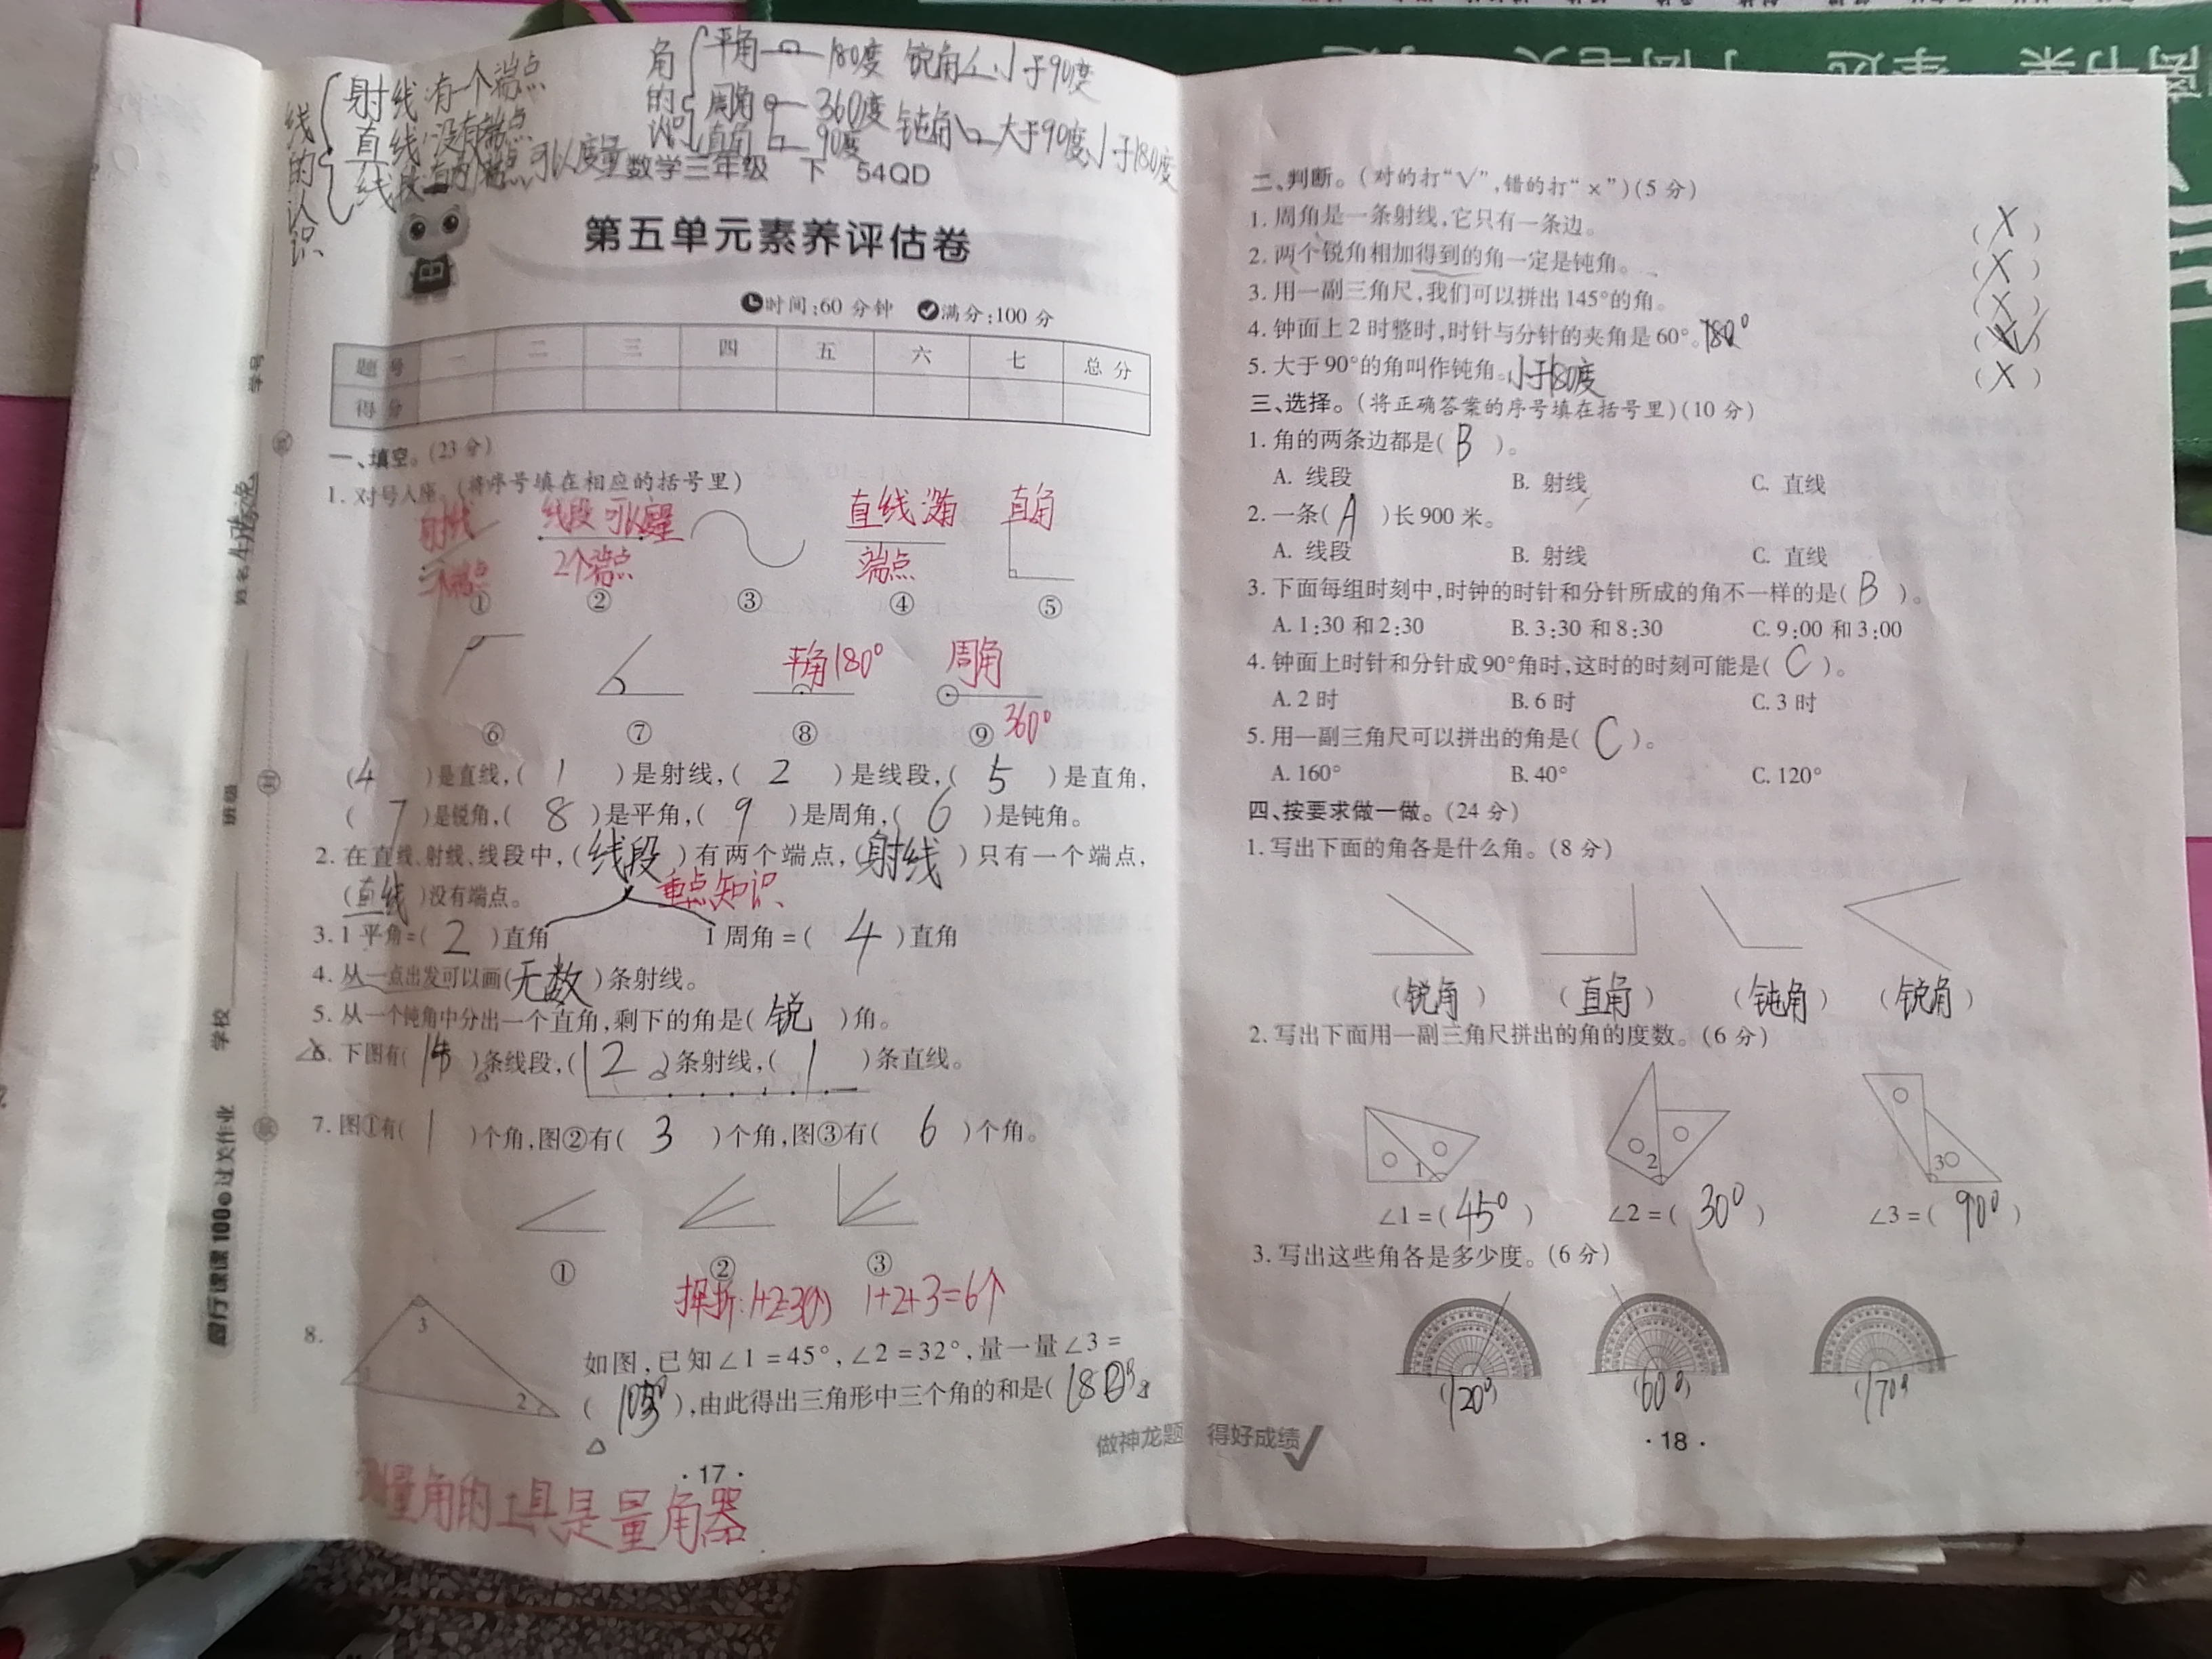 线的认识
射线:有一个端点
直线:没有端点
线段:有两个端点,可以度量
角的认识
平角 180度 锐角 小于90度
周角 360度 钝角 大于90度小于180度
直角 90度
数学三年级 下 54QD
第五单元素养评估卷
时间:60 分钟 满分:100 分
题 号 一 二 三 四 五 六 七 总 分
得 分
一、填空。(23 分)
1. 对号入座。(将序号填在相应的括号里)
射线 线段 可以度量 直线 没有 直角
一个端点 2个端点 端点
① ② ③ ④ ⑤
平角180° 周角
360°
⑥ ⑦ ⑧ ⑨
(4)是直线,(1)是射线,(2)是线段,(5)是直角,
(7)是锐角,(8)是平角,(9)是周角,(6)是钝角。
2. 在直线、射线、线段中,(线段)有两个端点,(射线)只有一个端点,
(直线)没有端点。
重点知识
3. 1 平角=(2)直角 1 周角=(4)直角
4. 从一点出发可以画(无数)条射线。
5. 从一个钝角中分出一个直角,剩下的角是(锐)角。
6. 下图有(15)条线段,(12)条射线,(1)条直线。
7. 图①有(1)个角,图②有(3)个角,图③有(6)个角。
① ② ③
1+2=3(个) 1+2+3=6个
8.
3
2
如图,已知∠1=45°,∠2=32°,量一量∠3=
(103°),由此得出三角形中三个角的和是(180°)。
·17·
测量角的工具是量角器
学号
姓名
班级
学校
同行课课100分过关作业
做神龙题 得好成绩
二、判断。(对的打“√”,错的打“×”)(5 分)
1. 周角是一条射线,它只有一条边。 (×)
2. 两个锐角相加得到的角一定是钝角。 (×)
3. 用一副三角尺,我们可以拼出145°的角。 (×)
4. 钟面上2时整时,时针与分针的夹角是60°。180° (√)
5. 大于90°的角叫作钝角。小于180度 (×)
三、选择。(将正确答案的序号填在括号里)(10 分)
1. 角的两条边都是(B)。
A. 线段 B. 射线 C. 直线
2. 一条(A)长900米。
A. 线段 B. 射线 C. 直线
3. 下面每组时刻中,时钟的时针和分针所成的角不一样的是(B)。
A. 1:30 和 2:30 B. 3:30 和 8:30 C. 9:00 和 3:00
4. 钟面上时针和分针成90°角时,这时的时刻可能是(C)。
A. 2 时 B. 6 时 C. 3 时
5. 用一副三角尺可以拼出的角是(C)。
A. 160° B. 40° C. 120°
四、按要求做一做。(24 分)
1. 写出下面的角各是什么角。(8 分)
(锐角) (直角) (钝角) (锐角)
2. 写出下面用一副三角尺拼出的角的度数。(6 分)
1 2 3
∠1=(45°) ∠2=(30°) ∠3=(90°)
3. 写出这些角各是多少度。(6 分)
(120°) (60°) (170°)
·18·